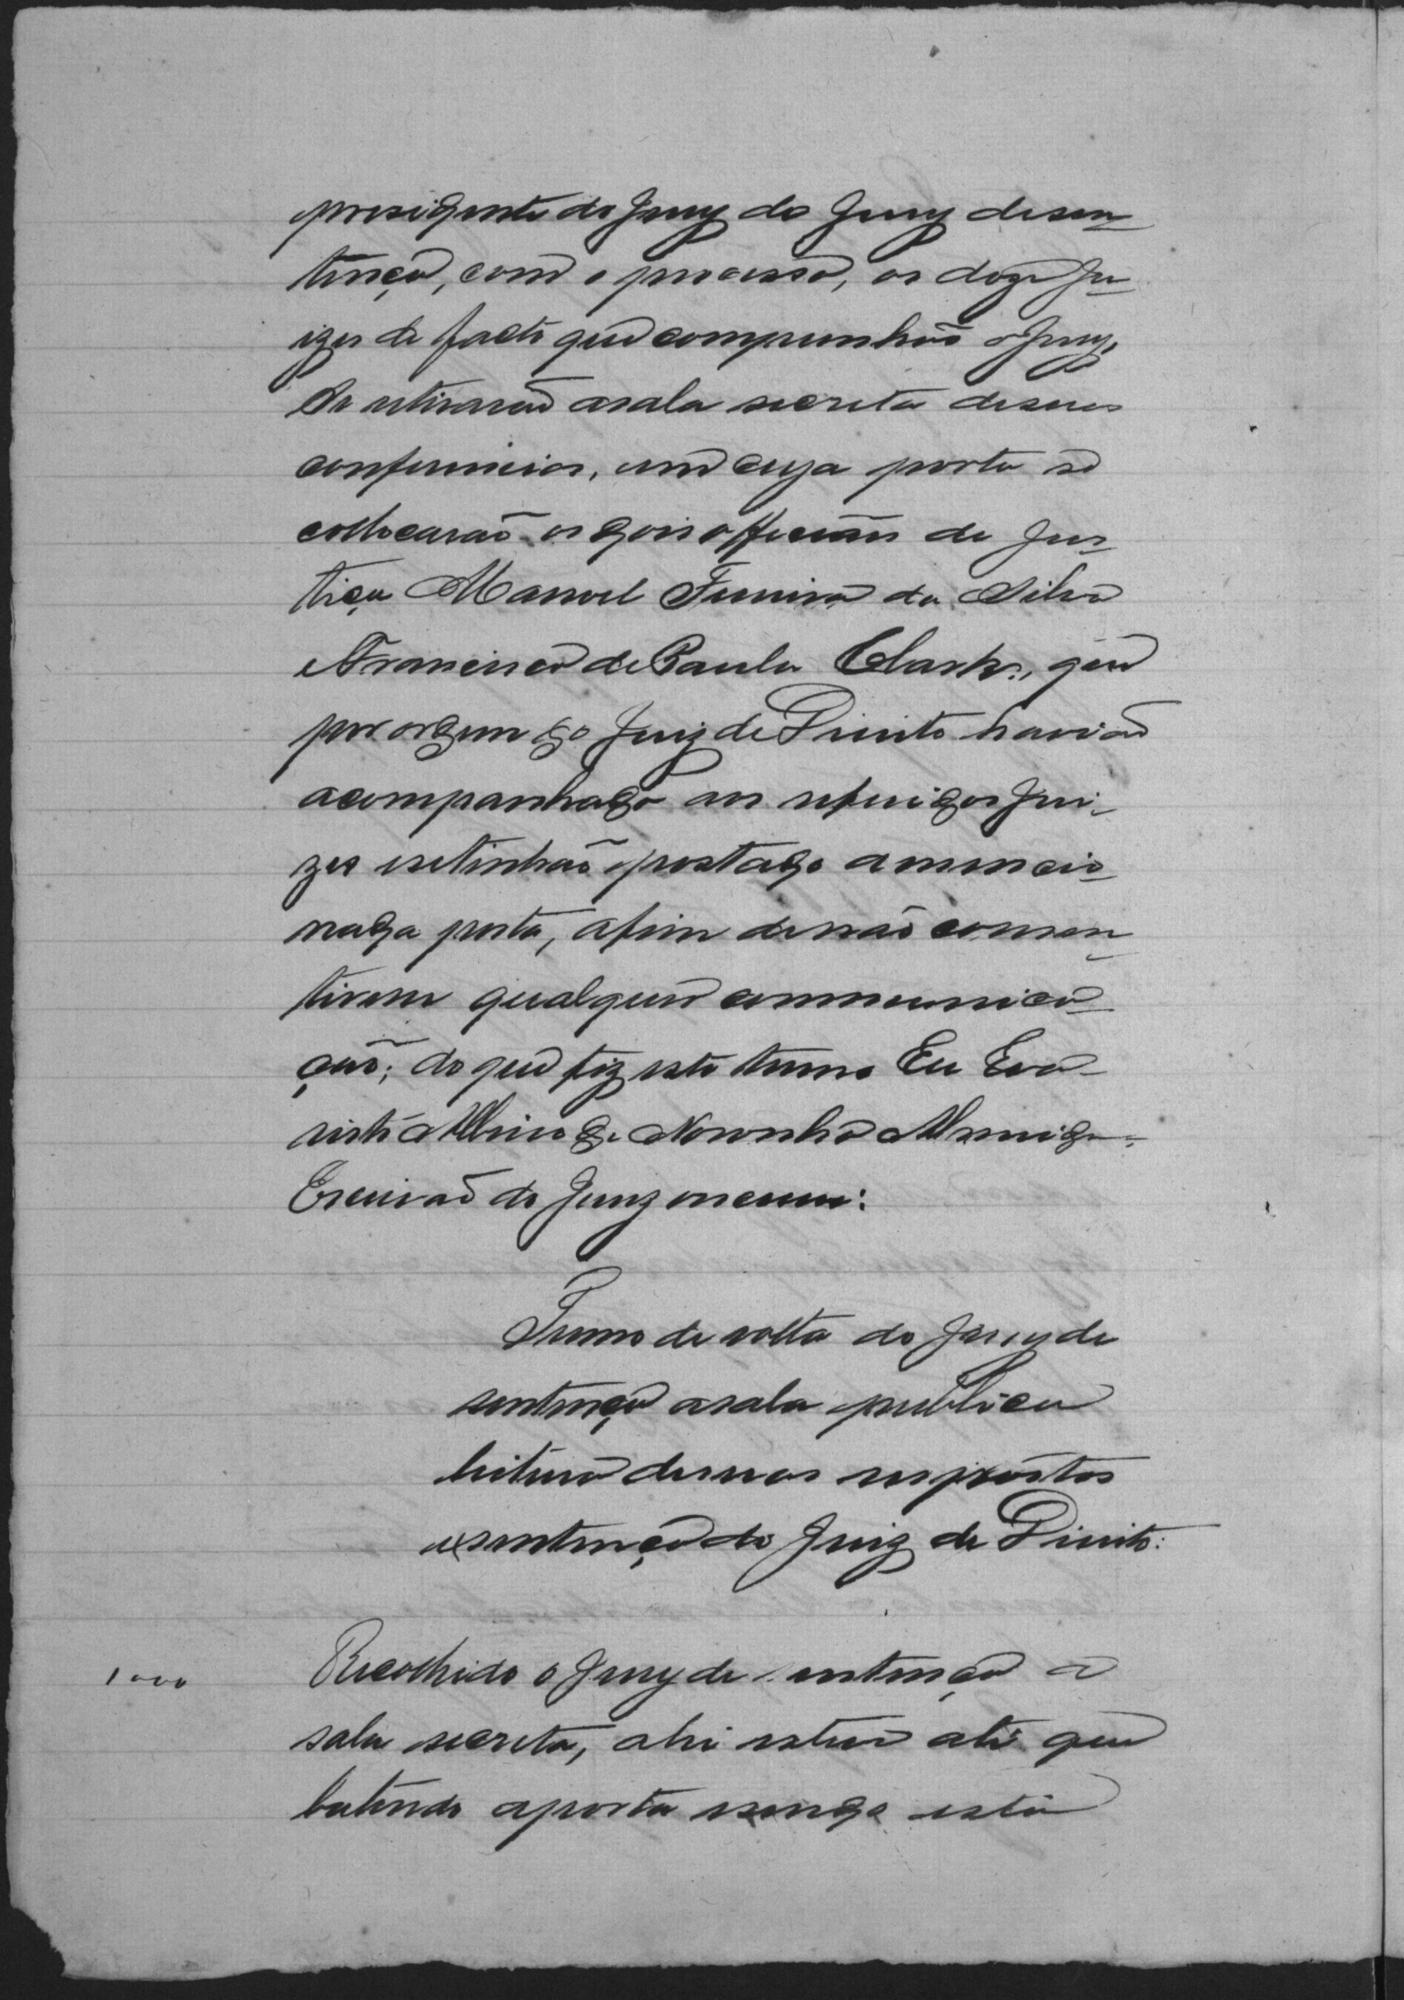 presidente do Jury do Jury de sen-
tença, com o processo, os doze Ju-
izes de facto que compunhão o Jury,
se retirarão a sala secreta de suas
conferencias, em cuja porta se
collocarão os dois officiaes de Jus-
tiça Manoel Ferreira da Silva
e Francisco de Paula Clark, que
por ordem do Juiz de Direito havião
acompanhado aos referidos Jui-
zes e se tinhão postado a mencio-
nada porta, afim de não consen-
tirem qualquer communica-
ção; do que fiz este termo Eu Eva-
risto Albino de Noronha Almeida
Escrivão do Jury escrevi:
Termo de volta do Jury de
sentença a sala publica
leitura de suas respostas
e sentença do Juiz de Direito:
1000
Recolhido o Jury de sentença a
sala secreta, ahi esteve até que
batendo a porta e sendo esta